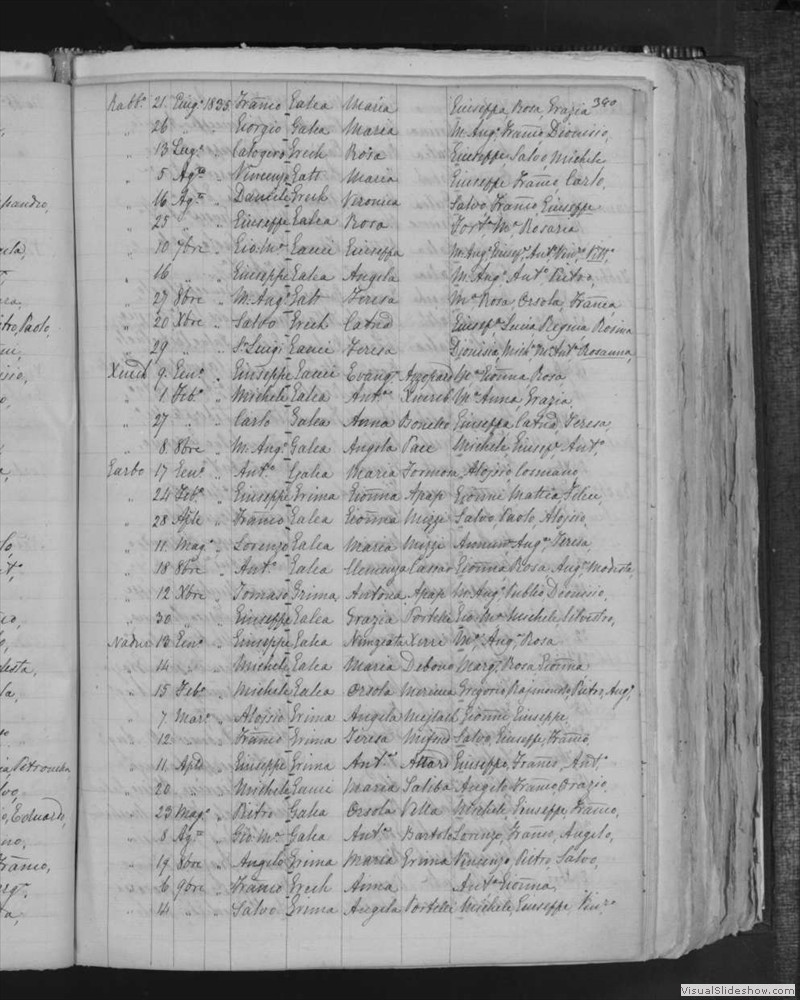 380
Rabb.o 21 Giug.o 1835 Franco Galea Maria Giuseppa, Rosa, Grazia
" 26 " " Giorgio Galea Maria M. Ang.o Franco Dionisio,
" 13 Lug.o " Calogero Grech Rosa Giuseppe Salvo Michele
" 5 Ag.to Vincenzo Gatt Maria Giuseppe Franco, Carlo,
" 16 Ag.to " Daniele Grech Veronica Salvo Franco, Giuseppe
" 25 " " Giuseppe Galea Rosa Fort.a M.a Rosaria
" 10 7bre " Gio: M.a Gauci Giuseppa M. Ang.o Giusep.e Ant.o Vin.o
" 16 " " Giuseppe Galea Angela M. Ang.o Ant.o Pietro,
" 27 8bre " M. Ang.o Gatt Teresa M.a Rosa, Orsola, Franca,
" 20 Xbre " Salvo Grech Catna Giusep.a Lucia Regina Rosina
" 29 " " Luigi Gauci Teresa Dionisia, M.a Ant.a Rosanna,
9 Gen.o " Giuseppe Gauci Evang.a M.a Gionna, Rosa,
" 1 Feb.o " Michele Galea Ant.a Xuireb M.a Anna, Grazia,
" 27 " " Carlo Galea Anna Bonello Giuseppa Catna, Teresa,
" 8 8bre " M. Ang.o Galea Angela Pace Michele, Giusep.e Ant.o
Garbo 17 Gen.o " Ant.o Galea Maria Formosa Aloisio Cosmano
" 24 Feb.o " Giuseppe Grima Gionna Apap Gionni Mattia, Felice,
" 28 Aple " Franco Galea Gionna Mizzi Salvo, Paolo, Aloisio,
" 11 Mag.o " Lorenzo Galea Maria Mizzi Ang.a Teresa,
" 18 8bre " Ant.o Galea Clemenza Cassar Gionna Rosa Ang.a Modesta,
" 12 Xbre " Tomaso Grima, Antona, Apap M. Ang.o Publio Dionisio,
" 30 " " Giuseppe Galea Grazia Portelli Gio. M.a Michele Silvestro,
Nadur 13 Gen.o " Giuseppe Galea Nunziata Xerri M.a Ang.a Rosa
" 14 " " Michele Galea Maria Debono Marg.a Rosa Gionna
" 15 Feb.o " Michele Galea Orsola Gregorio Raimondo Pietro, Ang.o
" 7 Mar.o " Aloisio Grima Angela Meylach Gionni, Giuseppe,
" 12 Franco Grima Teresa Mifsud Salvo, Giuseppe, Franco
" 11 Aple " Giuseppe Grima Ant.a Attard Giuseppe, Franco, Ant.o
" 20 " " Michele Gauci Maria Saliba Angelo Franco, Orazio,
" 23 Mag.o " Pietro Galea Orsola Vella Michele, Giuseppe, Franco,
" 8 Ag.to " Gio: M.a Galea Ant.a Bartolo Lorenzo, Franco, Angelo,
" 19 8bre " Angelo Grima Maria Grima Vincenzo, Pietro Salvo,
" 6 9bre " Franco Grech Anna Ant.a Gionna,
" 14 " " Salvo Grima Angela Portelli Michele, Giuseppe, Vin.zo
VisualSlideshow.com